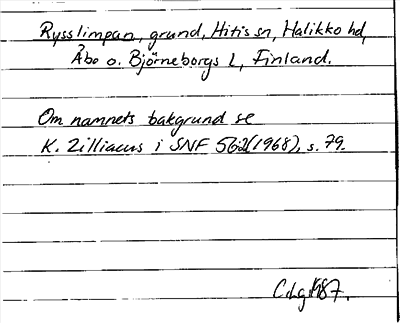 Rysslimpan, grund, Hitis sn, Halikko hd,
Åbo o. Björneborgs L, Finland.
Om namnets bakgrund se
K. Zilliacus i SNF 56 (1968), s. 79.
1987.